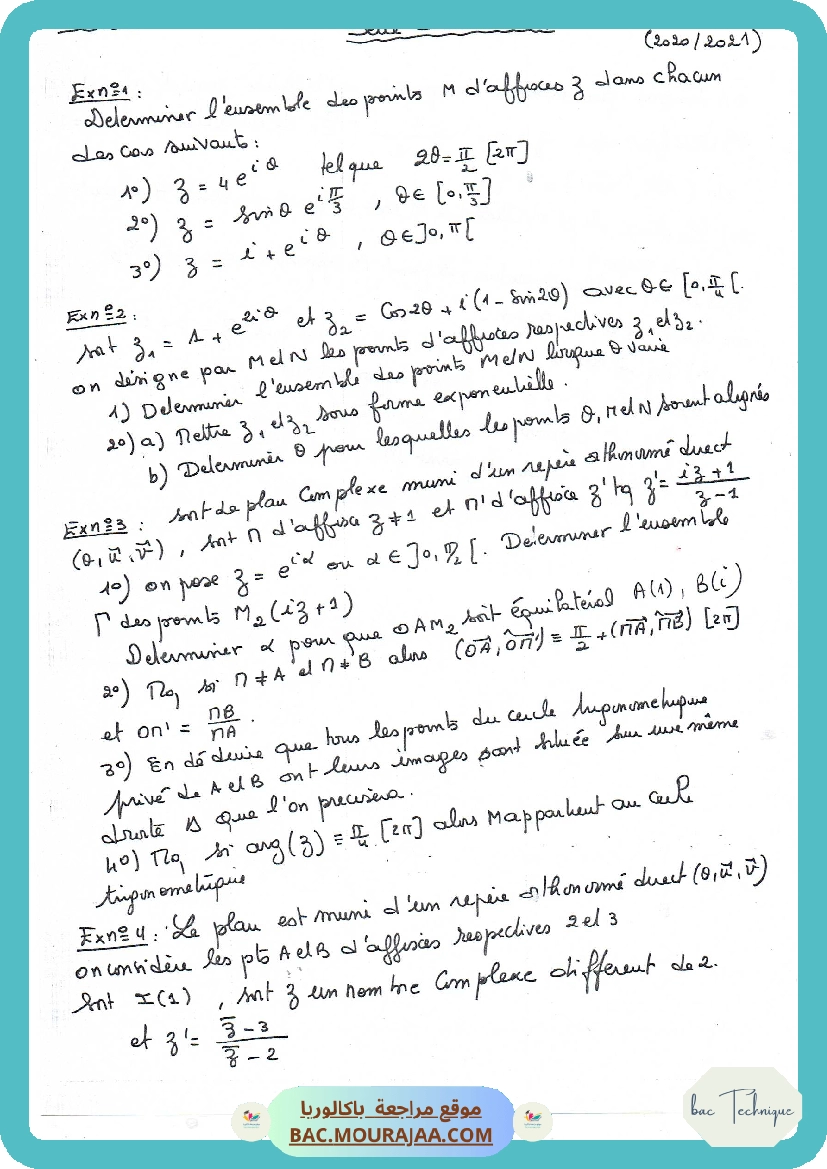 (2020/2021)
Exn°1 :
Determiner l'ensemble des points M d'affixes z dans chacun
des cas suivants :
1°) z = 4 e^{iθ} tel que 2θ = π/2 [2π]
2°) z = sinθ e^{iπ/3} , θ ∈ [0, π/3]
3°) z = i + e^{iθ} , θ ∈ ]0, π[
Exn°2 :
soit z₁ = 1 + e^{2iθ} et z₂ = Cos2θ + i(1 - Sin2θ) avec θ ∈ [0, π/4 [.
on désigne par M et N les points d'affixes respectives z₁ et z₂.
1) Determiner l'ensemble des points M et N lorsque θ varie
2°) a) Mettre z₁ et z₂ sous forme exponentielle.
b) Determiner θ pour lesquelles les points O, M et N soient alignés
Exn°3 : soit le plan Complexe muni d'un repère orthonormé direct
(O, u⃗, v⃗), soit M d'affixe z ≠ 1 et M' d'affixe z' tq z' = (iz + 1)/(z - 1)
1°) on pose z = e^{iα} ou α ∈ ]0, π/2 [. Determiner l'ensemble
Γ des points M₂ (iz + 1)
Determiner α pour que OAM₂ soit équilatéral A(1), B(i)
2°) Mq si M ≠ A et M ≠ B alors (OA⃗, OM'⃗) ≡ π/2 + (MA⃗, MB⃗) [2π]
et OM' = MB/MA .
3°) En déduire que tous les points du cercle trigonometrique
privé de A et B ont leurs images sont située sur une même
droite Δ que l'on precisera.
4°) Mq si arg(z) ≡ π/4 [2π] alors M appartient au cercle
trigonometrique
Exn°4 : Le plan est muni d'un repère orthonormé direct (O, u⃗, v⃗)
on considère les pts A et B d'affixes respectives 2 et 3
Soit I(1) , soit z un nombre Complexe different de 2.
et z' = (z̄ - 3)/(z̄ - 2)
bac Technique
موقع مراجعة باكالوريا
BAC.MOURAJAA.COM